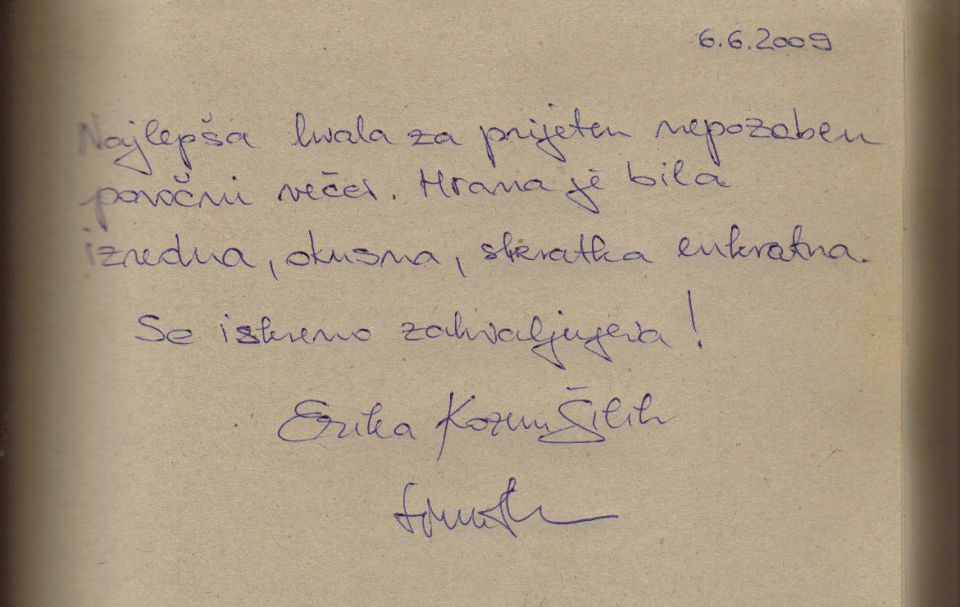 6.6.2009
Najlepša hvala za prijeten nepozaben
poročni večer. Hrana je bila
izredna, okusna, skratka enkratna.
Se iskreno zahvaljujeva!
Erika Šilih